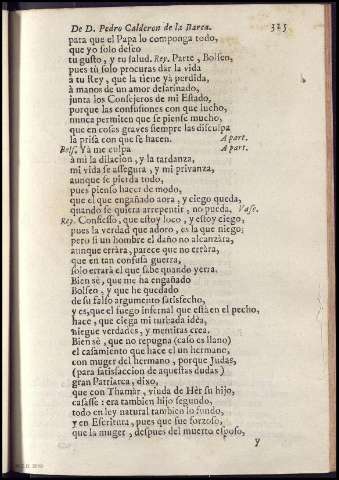 De D. Pedro Calderon de la Barca. 325
para que el Papa lo componga todo,
que yo solo deseo
tu gusto, y tu salud. Rey. Parte, Bolseo,
pues tù solo procuras dar la vida
à tu Rey, que la tiene yà perdida,
à manos de un amor desatinado,
junta los Consejeros de mi Estado,
porque las confusiones con que lucho,
nunca permiten que se piense mucho,
que en cosas graves siempre las disculpa
la prisa con que se hacen. A part.
Bols. Yà me culpa A part.
à mi la dilacion, y la tardanza,
mi vida se assegura, y mi privanza,
aunque se pierda todo,
pues pienso hacer de modo,
que el que engañado aora, y ciego queda,
quando se quiera arrepentir, no pueda. Vase.
Rey. Confiesso, que estoy loco, y estoy ciego,
pues la verdad que adoro, es la que niego;
pero si un hombre el daño no alcanzàra,
aunque erràra, parece que no erràra,
que en tan confusa guerra,
solo errarà el que sabe quando yerra.
Bien sè, que me ha engañado
Bolseo, y que he quedado
de su falso argumento satisfecho,
y es, que el fuego infernal que està en el pecho,
hace, que ciega mi turbada idèa,
niegue verdades, y mentiras crea.
Bien sè, que no repugna (caso es llano)
el casamiento que hace el un hermano,
con muger del hermano, porque Judas,
(para satisfaccion de aquestas dudas)
gran Patriarca, dixo,
que con Thamàr, viuda de Hèr su hijo,
casasse: era tambien hijo segundo,
todo en ley natural tambien lo fundo,
y en Escritura, pues que fue forzoso,
que la muger, despues del muerto esposo,
y